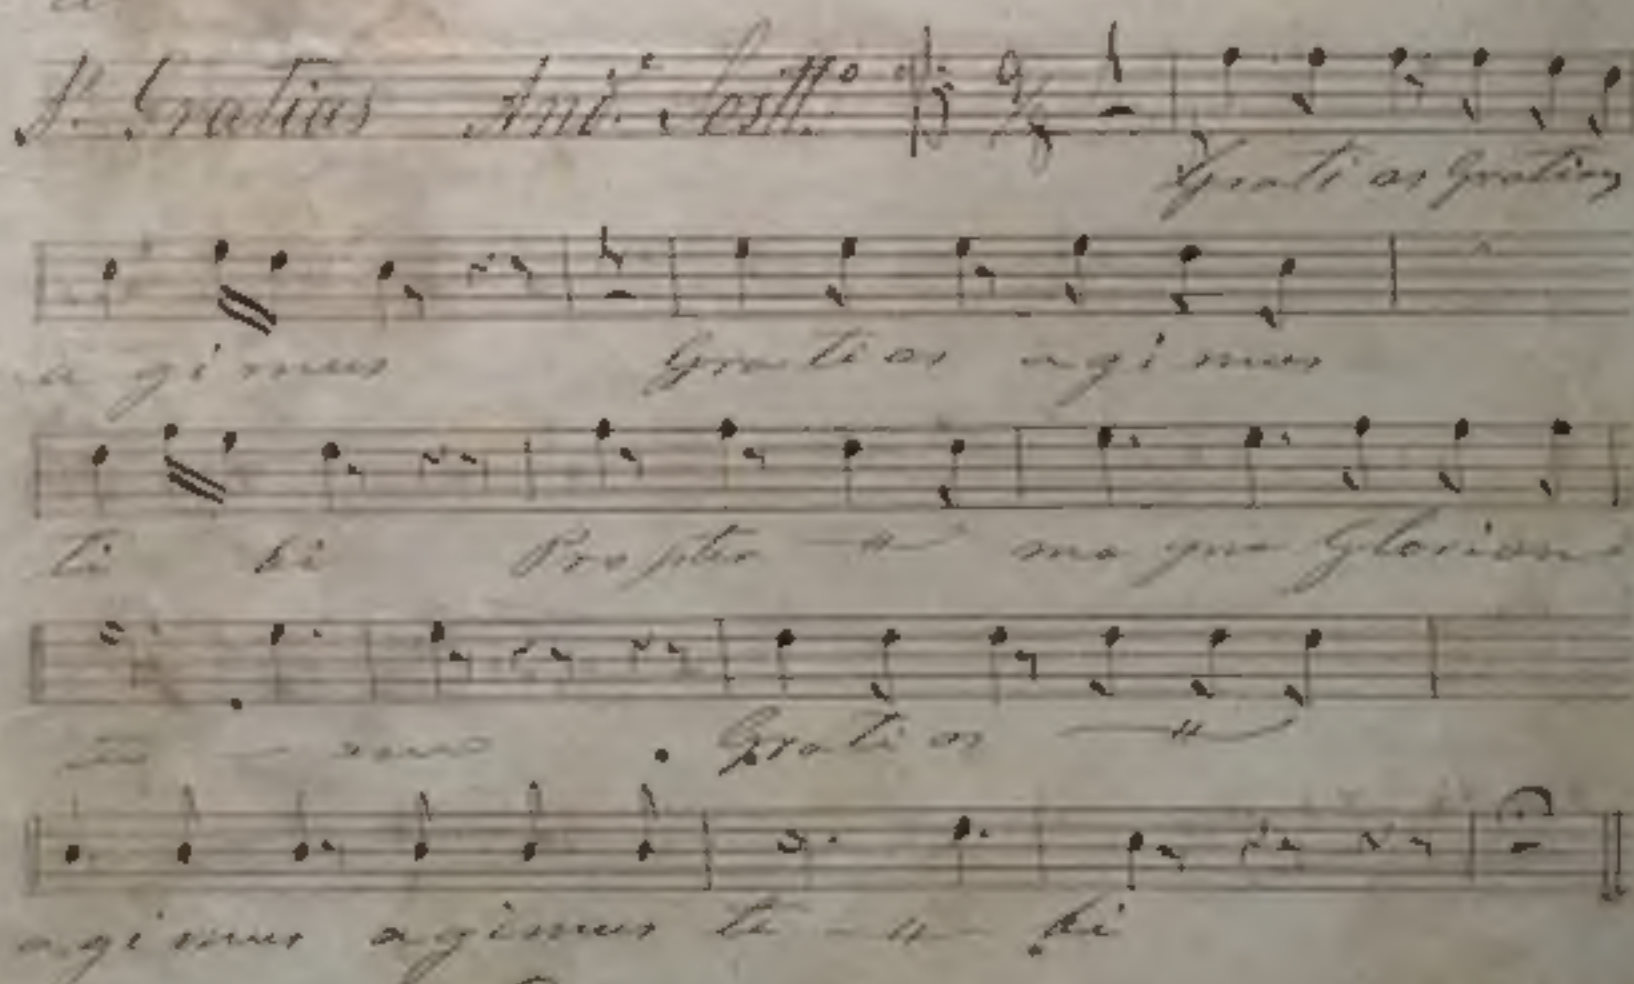 Pº Gratias Andte Sostto 9/8
Grati as Gratias
a gi mus Gra ti as a gi mus
ti bi Pro pter ma gna Gloriam
tu am Gra ti as
a gi mus a gi mus ti bi